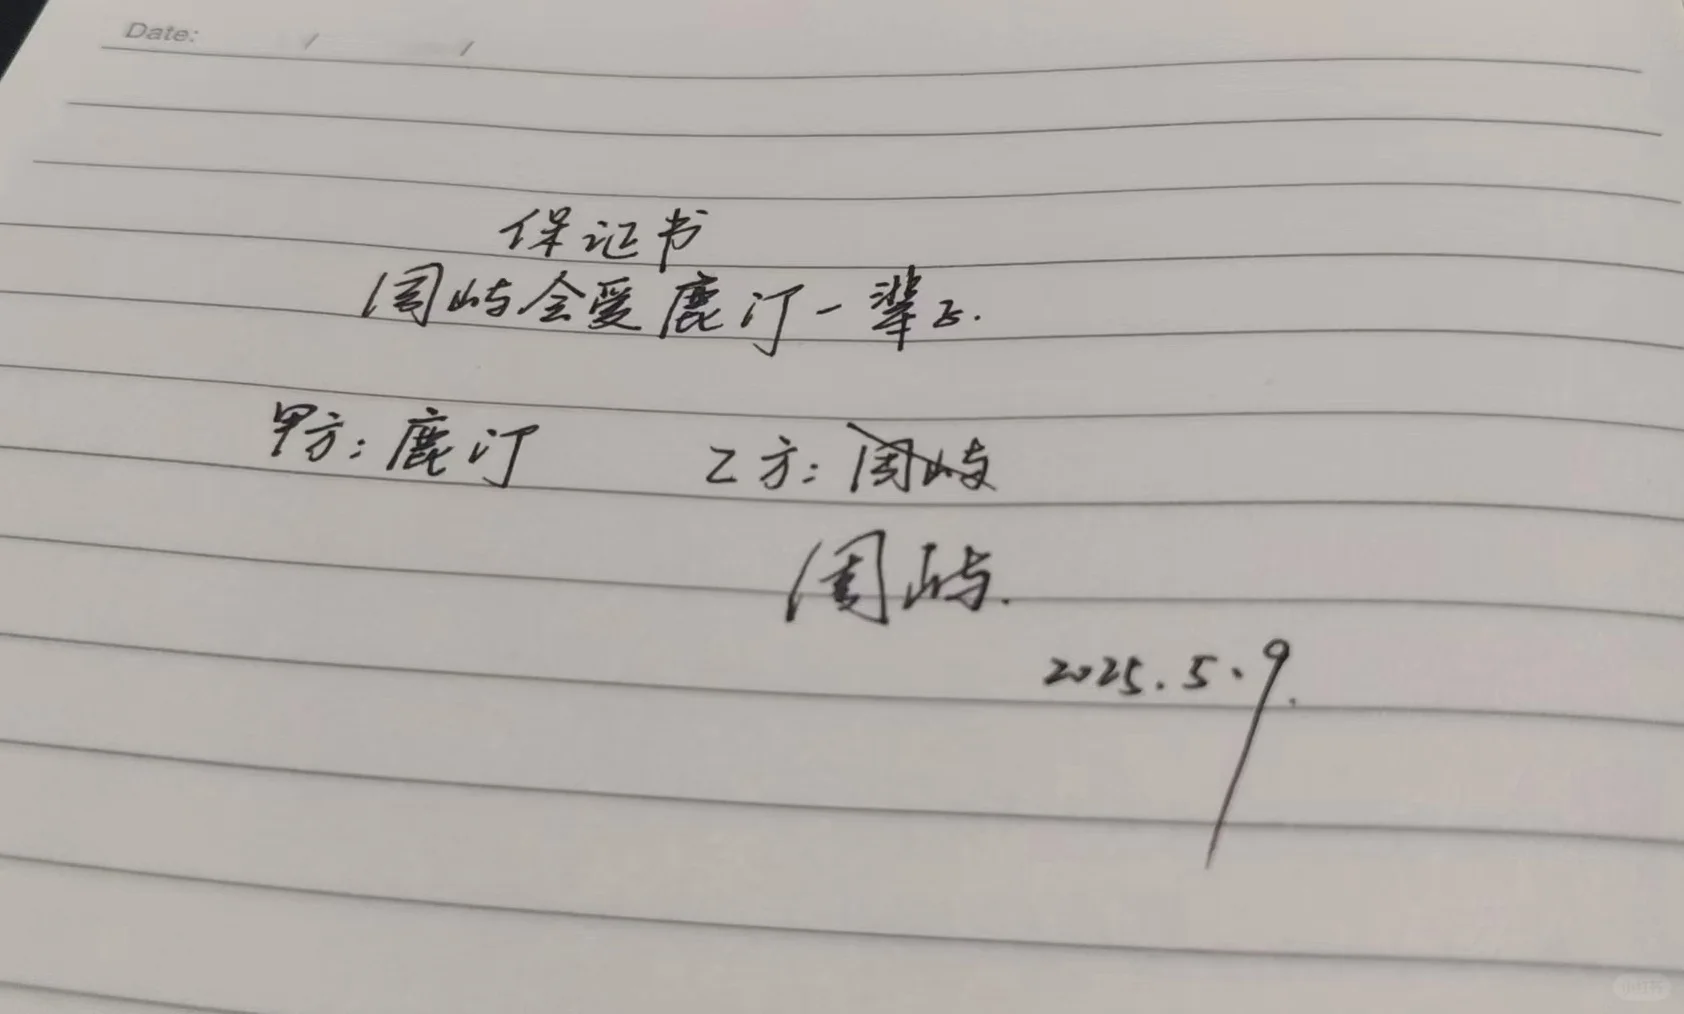 Date: / /
保证书
周屿会爱鹿汀一辈子.
甲方：鹿汀 乙方：周岐
周屿.
2025.5.9.
小红书